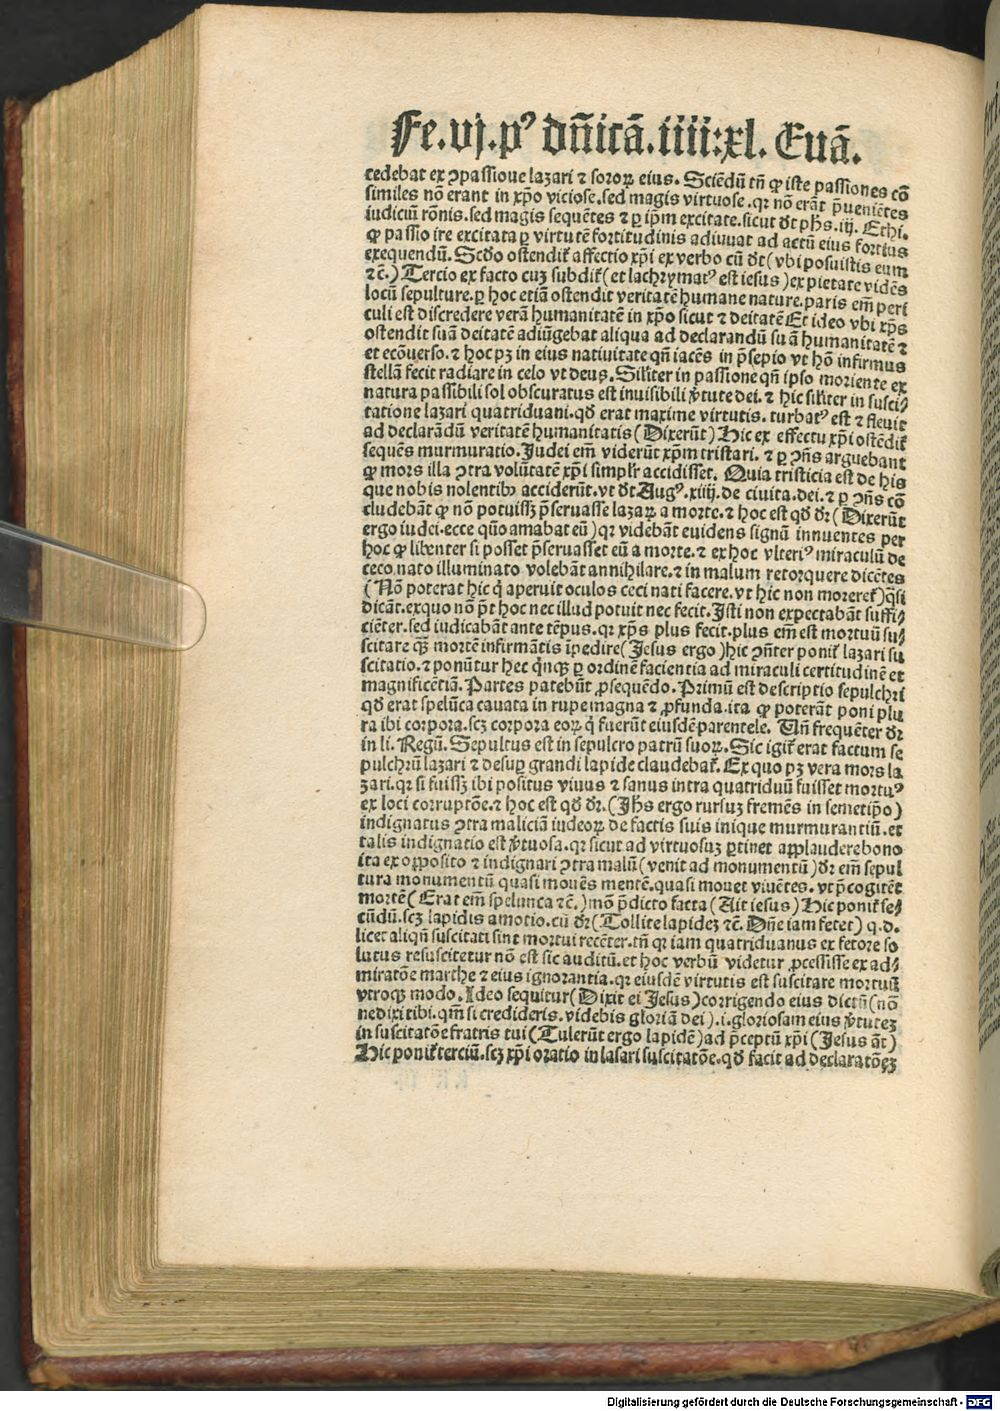 Fe.vj.pꝰ dñicã.iiij:xl. Euã.
cedebat ex ꝯpassioue lazari ⁊ soroꝝ eius. Sciẽdũ tñ ꝙ iste passiones cõ
similes nõ erant in xp̃o viciose.sed magis virtuose.qꝛ nõ erãt p̃ueniẽtes
iudiciũ rõnis.sed magis sequẽtes ⁊ ꝑ ip̃m excitate.sicut dt̃ ph̃s.iij. Ethi.
ꝙ passio ire excitata ꝑ virtutẽ fortitudinis adiuuat ad actũ eius fortius
exequendũ. Scd̃o ostendit̃ affectio xp̃i ex verbo cũ dt̃ (vbi posuistis eum
⁊c̃.) Tercio ex facto cuꝫ subdit̃ (et lachrymatꝰ est iesus) ex pietate vidẽs
locũ sepulture.ꝑ hoc etiã ostendit veritatẽ humane nature.paris em̃ peri
culi est discredere verã humanitatẽ in xp̃o sicut ⁊ deitatẽ Et ideo vbi xp̃s
ostendit suã deitatẽ adiũgebat aliqua ad declarandũ suã humanitatẽ ⁊
et ecõuerso.⁊ hoc pꝫ in eius natiuitate qñ iacẽs in p̃sepio vt hõ infirmus
stellã fecit radiare in celo vt deus. Sil̃iter in passione qñ ipso moriente ex
natura passibili sol obscuratus est inuisibili ṽtute dei.⁊ hic sil̃iter in susci⸗
tatione lazari quatriduani.qd̃ erat maxime virtutis. turbatꝰ est ⁊ fleuit
ad declarãdũ veritatẽ humanitatis (Dixerũt) Hic ex effectu xp̃i ostẽdit̃
sequẽs murmuratio. Judei em̃ viderũt xp̃m tristari. ⁊ ꝑ ꝯñs arguebant
ꝙ mors illa ꝯtra volũtatẽ xp̃i simplr̃ accidisset. Quia tristicia est de his
que nobis nolentibꝫ acciderũt.vt dt̃ Augꝰ.xiiij.de ciuita.dei.⁊ ꝑ ꝯñs cõ
cludebãt ꝙ nõ potuissꝫ p̃seruasse lazaꝝ a morte.⁊ hoc est qd̃ dr̃ (Dixerũt
ergo iudei.ecce quõ amabat eũ) qꝛ videbãt euidens signũ innuentes per
hoc ꝙ libenter si posset p̃seruasset eũ a morte.⁊ ex hoc vlteriꝰ miraculũ de
ceco nato illuminato volebãt annihilare.⁊ in malum retorquere dicẽtes
(Nõ poterat hic q̇ aperuit oculos ceci nati facere.vt hic non moreret̃) q̃si
dicãt.exquo nõ p̃t hoc nec illud potuit nec fecit. Isti non expectabãt suffi⸗
ciẽter.sed iudicabãt ante tẽpus.qꝛ xp̃s plus fecit.plus em̃ est mortuũ su⸗
scitare qꝫ̃ mortẽ infirmãtis ip̃edire (Jesus ergo) hic ꝯñter ponit̃ lazari su
scitatio.⁊ ponũtur hec q̇nqꝫ ꝑ ordinẽ facientia ad miraculi certitudinẽ et
magnificẽtiã. Partes patebũt ꝓsequẽdo. Primũ est descriptio sepulchri
qd̃ erat spelũca cauata in rupe magna ⁊ ꝓfunda.ita ꝙ poterãt poni plu
ra ibi corpora.scꝫ corpora eoꝝ q̇ fuerũt eiusdẽ parentele. Vñ frequẽter dr̃
in li. Regũ. Sepultus est in sepulcro patrũ suoꝝ. Sic igit̃ erat factum se
pulchrũ lazari ⁊ desuꝑ grandi lapide claudebat̃. Ex quo pꝫ vera mors la
zari.qꝛ si fuissꝫ ibi positus viuus ⁊ sanus intra quatriduũ fuisset mortuꝰ
ex loci corruptõe.⁊ hoc est qd̃ dr̃.(Jh̃s ergo rursuꝫ fremẽs in semetip̃o)
indignatus ꝯtra maliciã iudeoꝝ de factis suis inique murmurantiũ.et
talis indignatio est ṽtuosa.qꝛ sicut ad virtuosuꝫ ꝑtinet applaudere bono
ita ex opposito ⁊ indignari ꝯtra malũ (venit ad monumentũ) dr̃ em̃ sepul
tura monumentũ quasi mouẽs mentẽ.quasi mouet viuẽtes.vt p̃cogitẽt
mortẽ (Erat em̃ spelunca ⁊c̃.) mõ p̃dicto facta (Ait iesus) Hic ponit̃ se⸗
cũdũ.scꝫ lapidis amotio.cũ dr̃ (Tollite lapideꝫ ⁊c̃. Dñe iam fetet) q.d.
licet aliqñ suscitati sint mortui recẽter.tñ qꝛ iam quatriduanus ex fetore so
lutus resuscitetur nõ est sic auditũ.et hoc verbũ videtur ꝓcessisse ex ad⸗
miratõe marthe ⁊ eius ignorantia.qꝛ eiusdẽ virtutis est suscitare mortuũ
vtroqꝫ modo. Ideo sequitur (Dixit ei Jesus) corrigendo eius dictũ (nõ
ne dixi tibi.qm̃ si credideris.videbis gloriã dei).i.gloriosam eius ṽtuteꝫ
in suscitatõe fratris tui (Tulerũt ergo lapidẽ) ad p̃ceptũ xp̃i (Jesus aũt)
Hic ponit̃ terciũ.scꝫ xp̃i oratio in lasari suscitatõe.qd̃ facit ad declaratõeꝫ
Digitalisierung gefördert durch die Deutsche Forschungsgemeinschaft - DFG